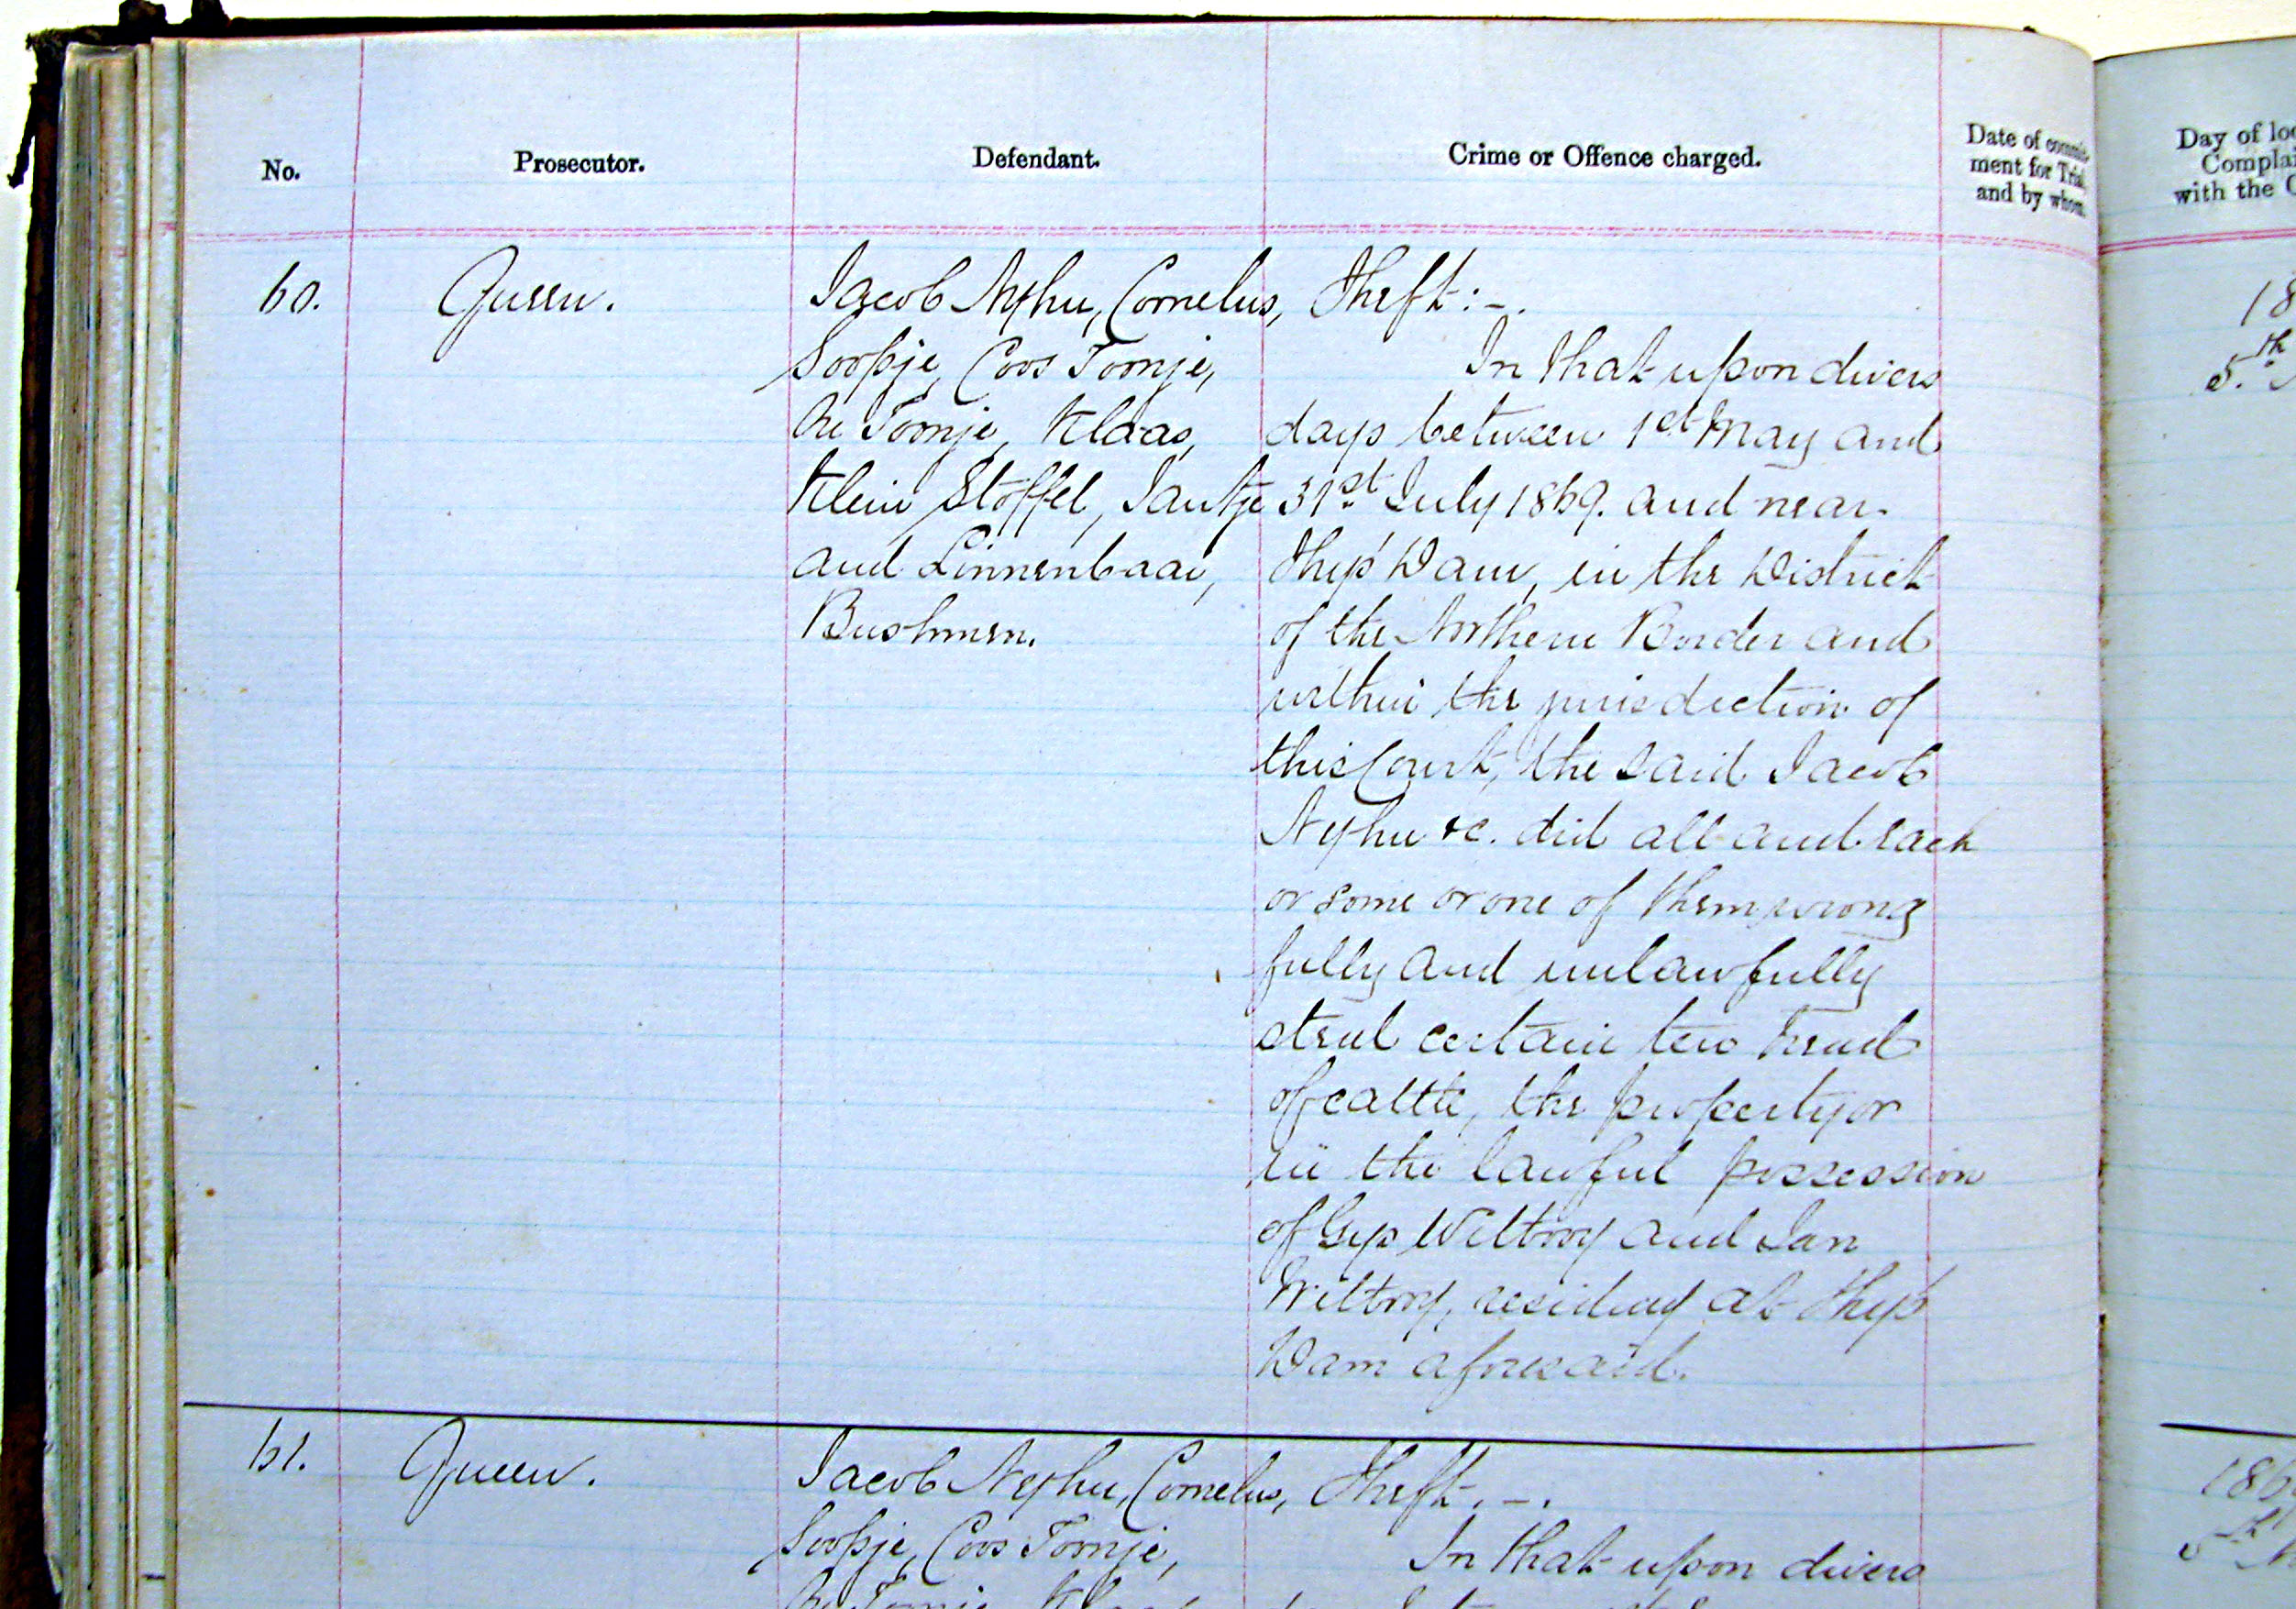 No. Prosecutor. Defendant. Crime or Offence charged. Date of commit-
ment for Trial,
and by whom.
Day of
with the
60. Queen. Jacob Nyhu, Cornelus, Theft:-.
Soopje, Coos Toonje, In that upon divers
Toonje, Klaas, days between 1st May and
Klein Stoffel, Jantje 31st July 1869. and near
and Linnenbaai, Thys' Dam, in the District
Bushmen. of the Northern Border and
within the jurisdiction of
this Court, the said Jacob
Nyhu &c. did all and each
or some or one of them wrong
fully and unlawfully
steal certain ten head
of cattle, the property or
in the lawful possession
of Gys Wiltooy and Jan
Wiltooy, residing at Thys'
Dam aforesaid.
18
5th
61. Queen. Jacob Nyhu, Cornelus, Theft.-.
Soopje, Coos Toonje, In that upon divers
186
5th